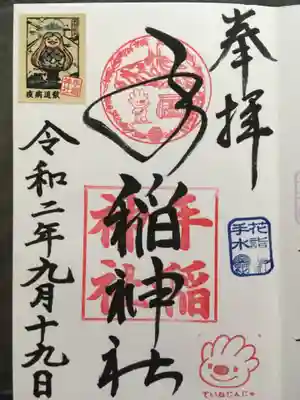 奉拝
手稲神社
手稲
神社
花詣
手水
ていねじんじゃ
疾病退散
令和二年九月十九日